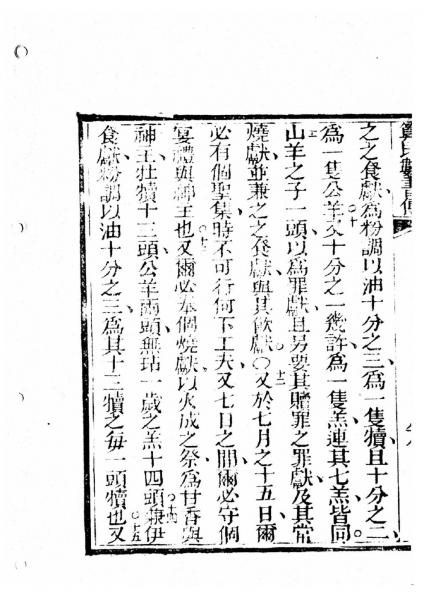 之之食獻為粉調以油十分之三為一隻犢且十分之二
為一隻公羊○十又十分之一幾許為一隻羔連其七羔皆同
○十一山羊之子一頭以為罪獻且另要其贖罪之罪獻及其常
燒獻並兼之之食獻與其飲獻○○十二又於七月之十五日爾
必有個聖集時不可行何下工夫又七日之間爾必守個
宴禮與神主也○十三又爾必奉個燒獻以火成之祭為甘香與
神主牡犢十三頭公羊兩頭無玷一歲之羔十四頭○十四兼伊
食獻粉調以油十分之三為其十三犢之每一頭犢也○十五又